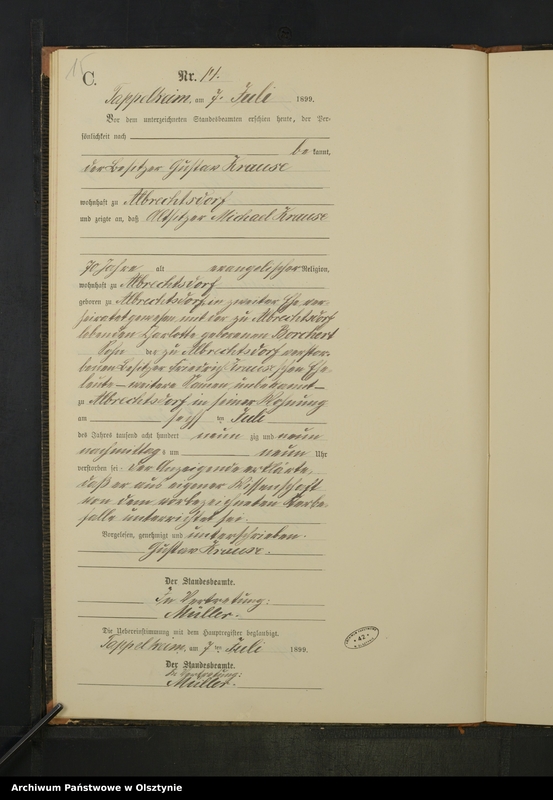 15
C.
Nr. 14.
Toppelheim, am 7. Juli 1899.
Vor dem unterzeichneten Standesbeamten erschien heute, der Per-
sönlichkeit nach
be kannt,
der Besitzer Gustav Krause
wohnhaft zu Albrechtsdorf
und zeigte an, daß Altsitzer Michael Krause
70 Jahre alt evangelischer Religion,
wohnhaft zu Albrechtsdorf
geboren zu Albrechtsdorf in zweiter Ehe ver-
heiratet gewesen mit der zu Albrechtsdorf
lebenden Charlotte geborenen Borchert
Sohn der zu Albrechtsdorf verstor-
benen Besitzer Friedrich Krause'schen Ehe-
leute – weitere Namen unbekannt –
zu Albrechtsdorf in seiner Wohnung
am sechsten Juli
des Jahres tausend acht hundert neun zig und neun
nachmittags um neun Uhr
verstorben sei. Der Anzeigende erklärte,
daß er aus eigener Wissenschaft
von dem vorbezeichneten Sterbe-
falle unterrichtet sei.
Vorgelesen, genehmigt und unterschrieben.
Gustav Krause.
Der Standesbeamte.
In Vertretung:
Müller.
Die Uebereinstimmung mit dem Hauptregister beglaubigt.
Toppelheim, am 7 ten Juli 1899.
Der Standesbeamte.
In Vertretung:
Müller.
42
Archiwum Państwowe w Olsztynie